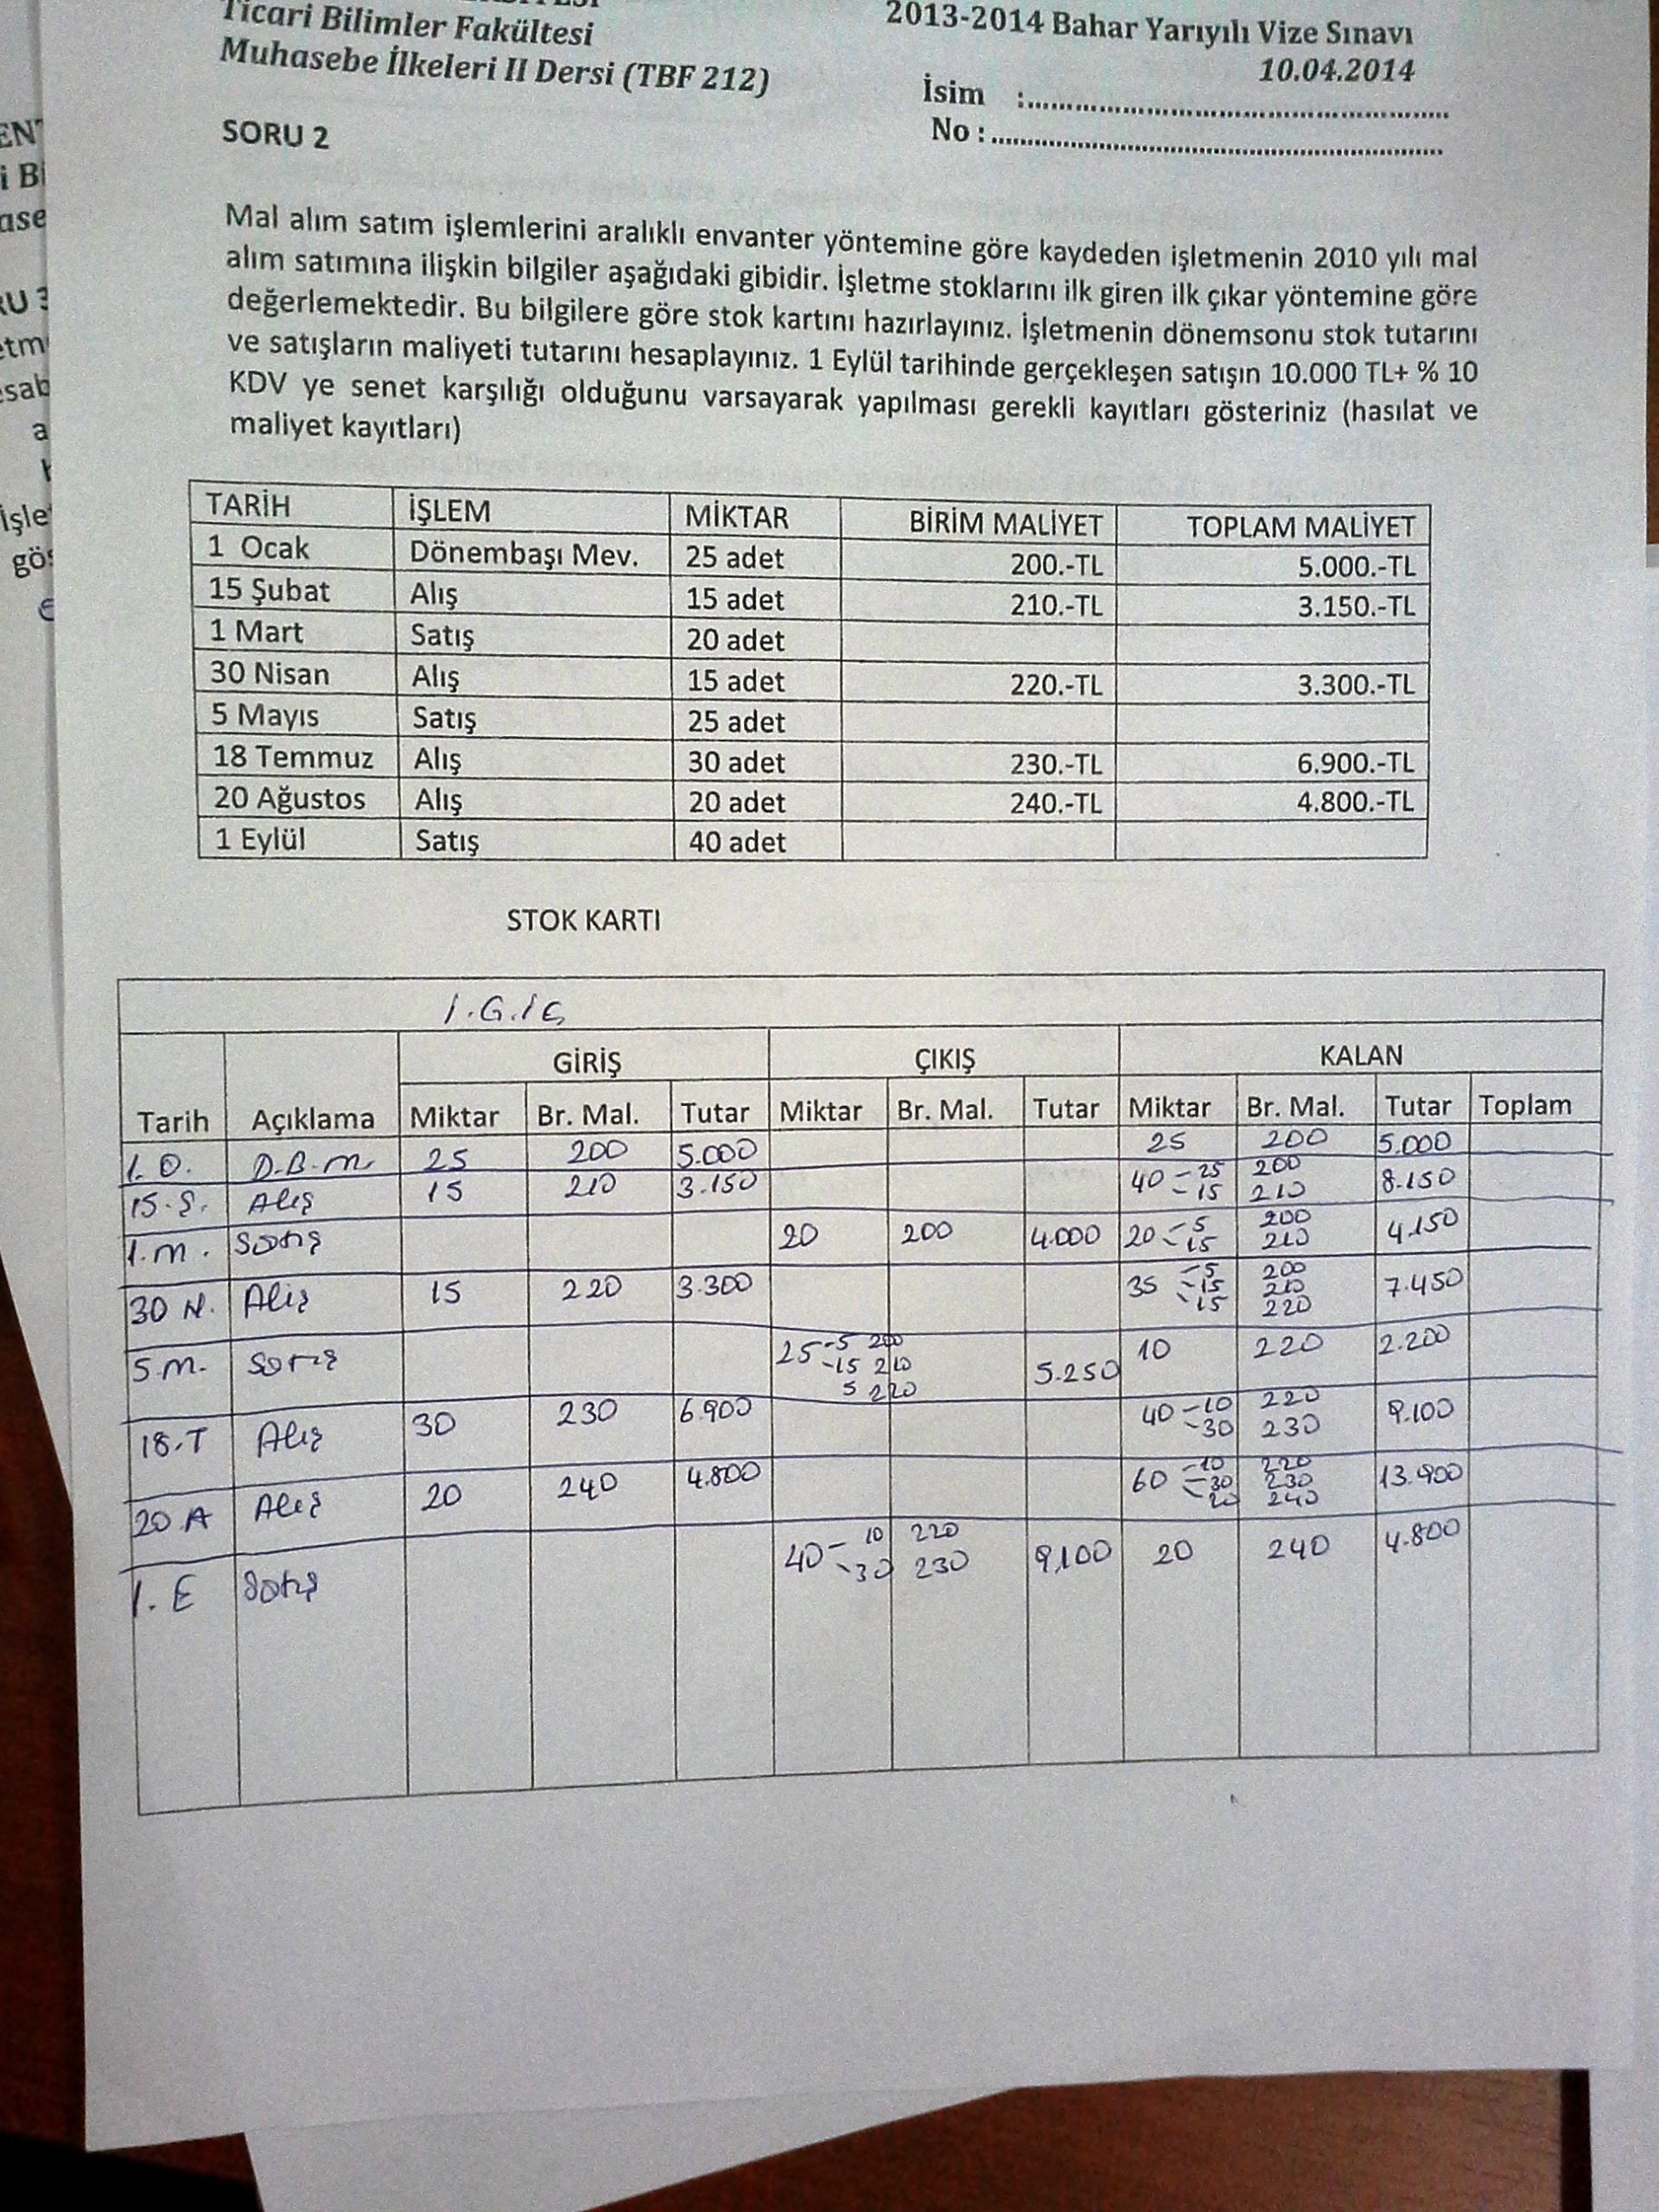 Ticari Bilimler Fakültesi
Muhasebe İlkeleri II Dersi (TBF 212)
2013-2014 Bahar Yarıyılı Vize Sınavı
10.04.2014
İsim :
No :
SORU 2
Mal alım satım işlemlerini aralıklı envanter yöntemine göre kaydeden işletmenin 2010 yılı mal
alım satımına ilişkin bilgiler aşağıdaki gibidir. İşletme stoklarını ilk giren ilk çıkar yöntemine göre
değerlemektedir. Bu bilgilere göre stok kartını hazırlayınız. İşletmenin dönemsonu stok tutarını
ve satışların maliyeti tutarını hesaplayınız. 1 Eylül tarihinde gerçekleşen satışın 10.000 TL+ % 10
KDV ye senet karşılığı olduğunu varsayarak yapılması gerekli kayıtları gösteriniz (hasılat ve
maliyet kayıtları)
TARİH İŞLEM MİKTAR BİRİM MALİYET TOPLAM MALİYET
1 Ocak Dönembaşı Mev. 25 adet 200.-TL 5.000.-TL
15 Şubat Alış 15 adet 210.-TL 3.150.-TL
1 Mart Satış 20 adet
30 Nisan Alış 15 adet 220.-TL 3.300.-TL
5 Mayıs Satış 25 adet
18 Temmuz Alış 30 adet 230.-TL 6.900.-TL
20 Ağustos Alış 20 adet 240.-TL 4.800.-TL
1 Eylül Satış 40 adet
STOK KARTI
İ.G.İ.Ç
GİRİŞ ÇIKIŞ KALAN
Tarih Açıklama Miktar Br. Mal. Tutar Miktar Br. Mal. Tutar Miktar Br. Mal. Tutar Toplam
1.O. D.B.M. 25 200 5.000 25 200 5.000
15.Ş. Alış 15 210 3.150 40 - 25 200 8.150
- 15 210
1.M. Satış 20 200 4.000 20 - 5 200 4.150
- 15 210
30 N. Alış 15 220 3.300 35 - 5 200 7.450
- 15 210
- 15 220
5.M. Satış 25 - 5 200 5.250 10 220 2.200
- 15 210
5 220
18.T Alış 30 230 6.900 40 - 10 220 9.100
- 30 230
20.A Alış 20 240 4.800 60 - 10 220 13.900
- 30 230
- 20 240
1.E Satış 40 - 10 220 9.100 20 240 4.800
- 30 230